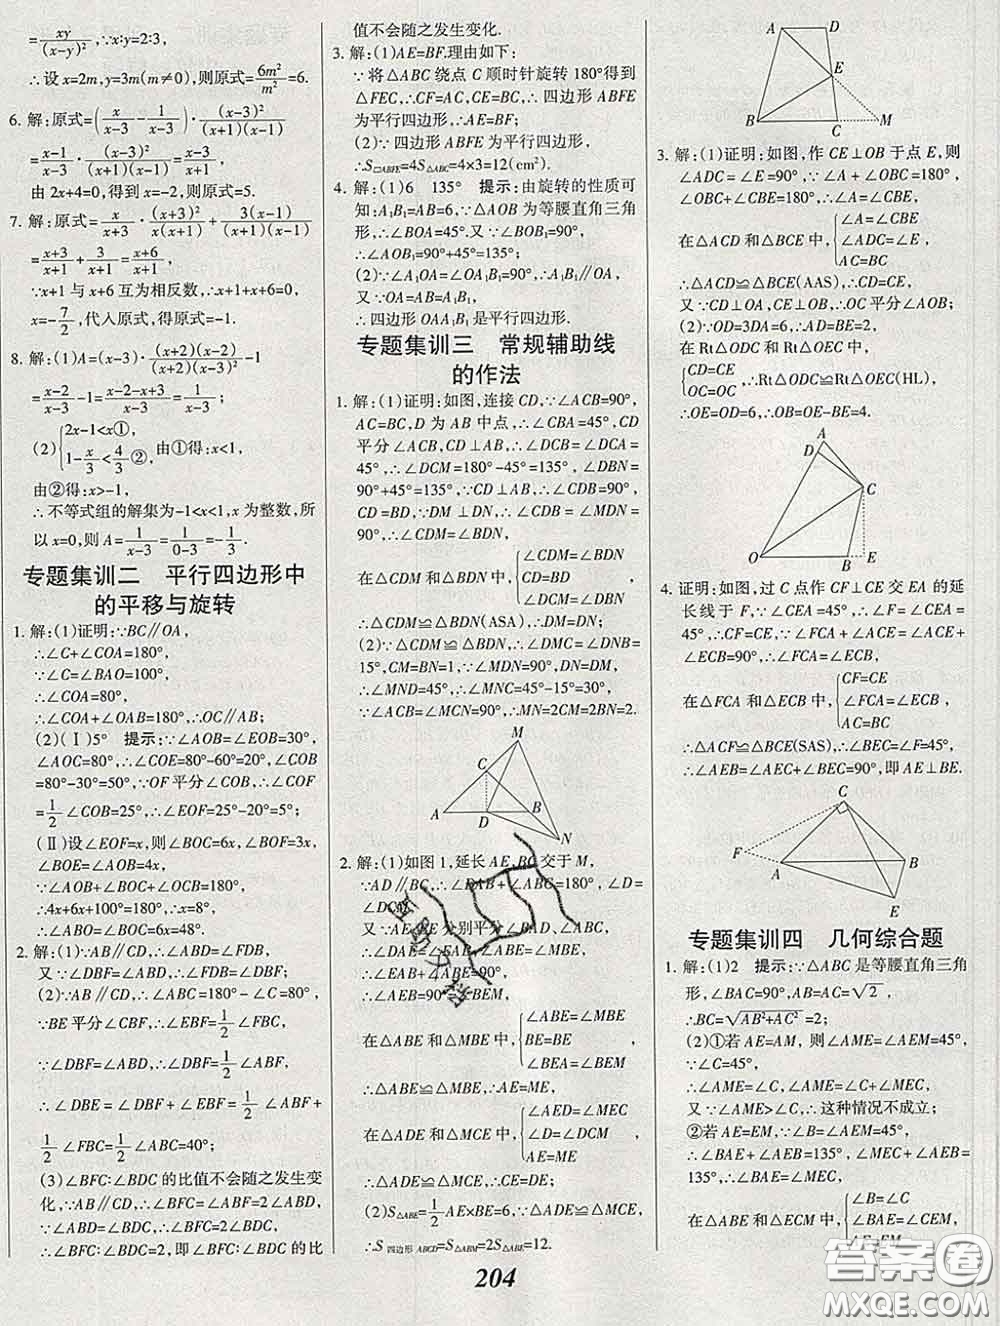 =xy/(x-y)²,∵x∶y=2∶3,
∴设 x=2m,y=3m(m≠0),则原式=6m²/m²=6.
6. 解:原式=(x/(x-3)-1/(x-3))·(x-3)²/((x+1)(x-1))
=(x-1)/(x-3)·(x-3)²/((x+1)(x-1))=(x-3)/(x+1),
由 2x+4=0,得到 x=-2,则原式=5.
7. 解:原式=x/(x+3)·(x+3)²/(x(x+1))+3(x-1)/((x+1)(x-1))
=(x+3)/(x+1)+3/(x+1)=(x+6)/(x+1),
∵x+1 与 x+6 互为相反数,∴x+1+x+6=0,
x=-7/2,代入原式,得原式=-1.
8. 解:(1)A=(x-3)·(x+2)(x-2)/((x+2)(x-3)²)-1
=(x-2)/(x-3)-1=(x-2-x+3)/(x-3)=1/(x-3);
(2){2x-1<x①, 1-x/3<4/3②, 由①得:x<1,
由②得:x>-1,
∴不等式组的解集为-1<x<1,x 为整数,所
以 x=0,则 A=1/(x-3)=1/(0-3)=-1/3.
专题集训二 平行四边形中
的平移与旋转
1. 解:(1)证明:∵BC∥OA,
∴∠C+∠COA=180°,
∵∠C=∠BAO=100°,
∴∠COA=80°,
∴∠COA+∠OAB=180°,∴OC∥AB;
(2)(Ⅰ)5° 提示:∵∠AOB=∠EOB=30°,
∠AOC=80°,∴∠COE=80°-60°=20°,∠COB
=80°-30°=50°,∵OF 平分∠COB,∴∠COF
=1/2∠COB=25°,∴∠EOF=25°-20°=5°;
(Ⅱ)设∠EOF=x,则∠BOC=6x,∠BOF=3x,
∠BOE=∠AOB=4x,
∵∠AOB+∠BOC+∠OCB=180°,
∴4x+6x+100°=180°,∴x=8°,
∴∠ABO=∠BOC=6x=48°.
2. 解:(1)∵AB∥CD,∴∠ABF=∠FDB,
又∵∠DBF=∠ABF,∴∠DBF=∠FDB;
(2)∵AB∥CD,∴∠ABC=180°-∠C=80°,
∵BE 平分∠CBF,∴∠EBF=1/2∠FBC,
∵∠DBF=∠ABF,∴∠DBF=1/2∠ABF,
∴∠DBE=∠DBF+∠EBF=1/2∠ABF+
1/2∠FBC=1/2∠ABC=40°;
(3)∠BFC∶∠BDC 的比值不会随之发生变
化,∵AB∥CD,∴∠BFC=∠ABF=2∠ABD,
∵∠ABD=∠BDC,∴∠BFC=2∠BDC,
∴∠BFC∶∠BDC=2,即∠BFC∶∠BDC 的比
值不会随之发生变化.
3. 解:(1)AE=BF.理由如下:
∵将△ABC 绕点 C 顺时针旋转 180°得到
△FEC,∴CF=AC,CE=BC,∴四边形 ABFE
为平行四边形,∴AE=BF;
(2)∵四边形 ABFE 为平行四边形,
∴S□ABFE=4S△ABC=4×3=12(cm²).
4. 解:(1)6 135° 提示:由旋转的性质可
知:A₁B₁=AB=6,∵△AOB 为等腰直角三角
形,∴∠BOA=45°.又∵∠BOB₁=90°,
∴∠AOB₁=90°+45°=135°;
(2)∵∠A₁OA=∠OA₁B₁=90°,∴A₁B₁∥OA,
又∵OA=AB=A₁B₁,
∴四边形 OAA₁B₁是平行四边形.
专题集训三 常规辅助线
的作法
1. 解:(1)证明:如图,连接 CD,∵∠ACB=90°,
AC=BC,D 为 AB 中点,∴∠CBA=45°,CD
平分∠ACB,CD⊥AB,∴∠DCB=∠DCA=
45°,∴∠DCM=180°-45°=135°,∠DBN=
90°+45°=135°,∵CD⊥AB,∴∠CDB=90°,
CD=DB,∵DM⊥DN,∴∠MDN=90°,
∴∠CDM=∠BDN,
在△CDM 和△BDN 中,{∠CDM=∠BDN
CD=BD
∠DCM=∠DBN
∴△CDM≌△BDN(ASA),∴DM=DN;
(2)∵△CDM≌△BDN,∴∠DMC=∠DNB=
15°,CM=BN=1,∵∠MDN=90°,DN=DM,
∴∠MND=45°,∴∠MNC=45°-15°=30°,
又∵∠MCN=90°,∴MN=2CM=2BN=2.
M
C
A D B
N
2. 解:(1)如图 1,延长 AE,BC 交于 M,
∵AD∥BC,∴∠BAB+∠ABC=180°,∠D=
∠DCM,
又∵AE,BE 分别平分∠BAD、∠ABC,
∴∠BAE+∠ABE=90°,∠ABE=∠MBE,
∴∠AEB=90°=∠BEM,
在△ABE 和△MBE 中,{∠ABE=∠MBE
BE=BE
∠AEB=∠BEM
∴△ABE≌△MBE,∴AE=ME,
在△ADE 和△MCE 中,{∠AED=∠MEC
∠D=∠DCM,
AE=ME
∴△ADE≌△MCE,∴CE=DE;
(2)S△ABE=1/2AE×BE=6,∵△ABE≌△MBE,
∴S四边形ABCD=S△ABM=2S△ABE=12.
A D
E
B C M
3. 解:(1)证明:如图,作 CE⊥OB 于点 E,则
∠ADC=∠E=90°,∵∠A+∠OBC=180°,
∠OBC+∠CBE=180°,∴∠A=∠CBE,
在△ACD 和△BCE 中,{∠A=∠CBE
∠ADC=∠E,
AC=BC
∴△ACD≌△BCE(AAS),∴CD=CE,
又∵CD⊥OA,CE⊥OB,∴OC 平分∠AOB;
(2)∵OD=3DA=6,∴AD=BE=2,
在 Rt△ODC 和 Rt△OEC 中,
{CD=CE
OC=OC ∴Rt△ODC≌Rt△OEC(HL),
∴OE=OD=6,∴OB=OE-BE=4.
A
D
C
O B E
4. 证明:如图,过 C 点作 CF⊥CE 交 EA 的延
长线于 F,∵∠CEA=45°,∴∠F=∠CEA=
45°,∴CF=CE,∵∠FCA+∠ACE=∠ACE+
∠ECB=90°,∴∠FCA=∠ECB,
在△FCA 和△ECB 中,{CF=CE
∠FCA=∠ECB,
AC=BC
∴△ACF≌△BCE(SAS),∴∠BEC=∠F=45°,
∴∠AEB=∠AEC+∠BEC=90°,即 AE⊥BE.
C
F
A B
E
专题集训四 几何综合题
1. 解:(1)2 提示:∵△ABC 是等腰直角三角
形,∠BAC=90°,AB=AC=√2,
∴BC=√(AB²+AC²)=2;
(2)①若 AE=AM,则∠AME=∠AEM=45°,
∵∠C=45°,
∴∠AME=∠C,又∵∠AME=∠C+∠MEC,
又∵∠AME>∠C,∴这种情况不成立;
②若 AE=EM,∵∠B=∠AEM=45°,
∴∠BAE+∠AEB=135°,∠MEC+∠AEB=
135°,∴∠BAE=∠MEC,
在△ABE 和△ECM 中,{∠B=∠C
∠BAE=∠CEM,
204
答案圈
MXQE.COM